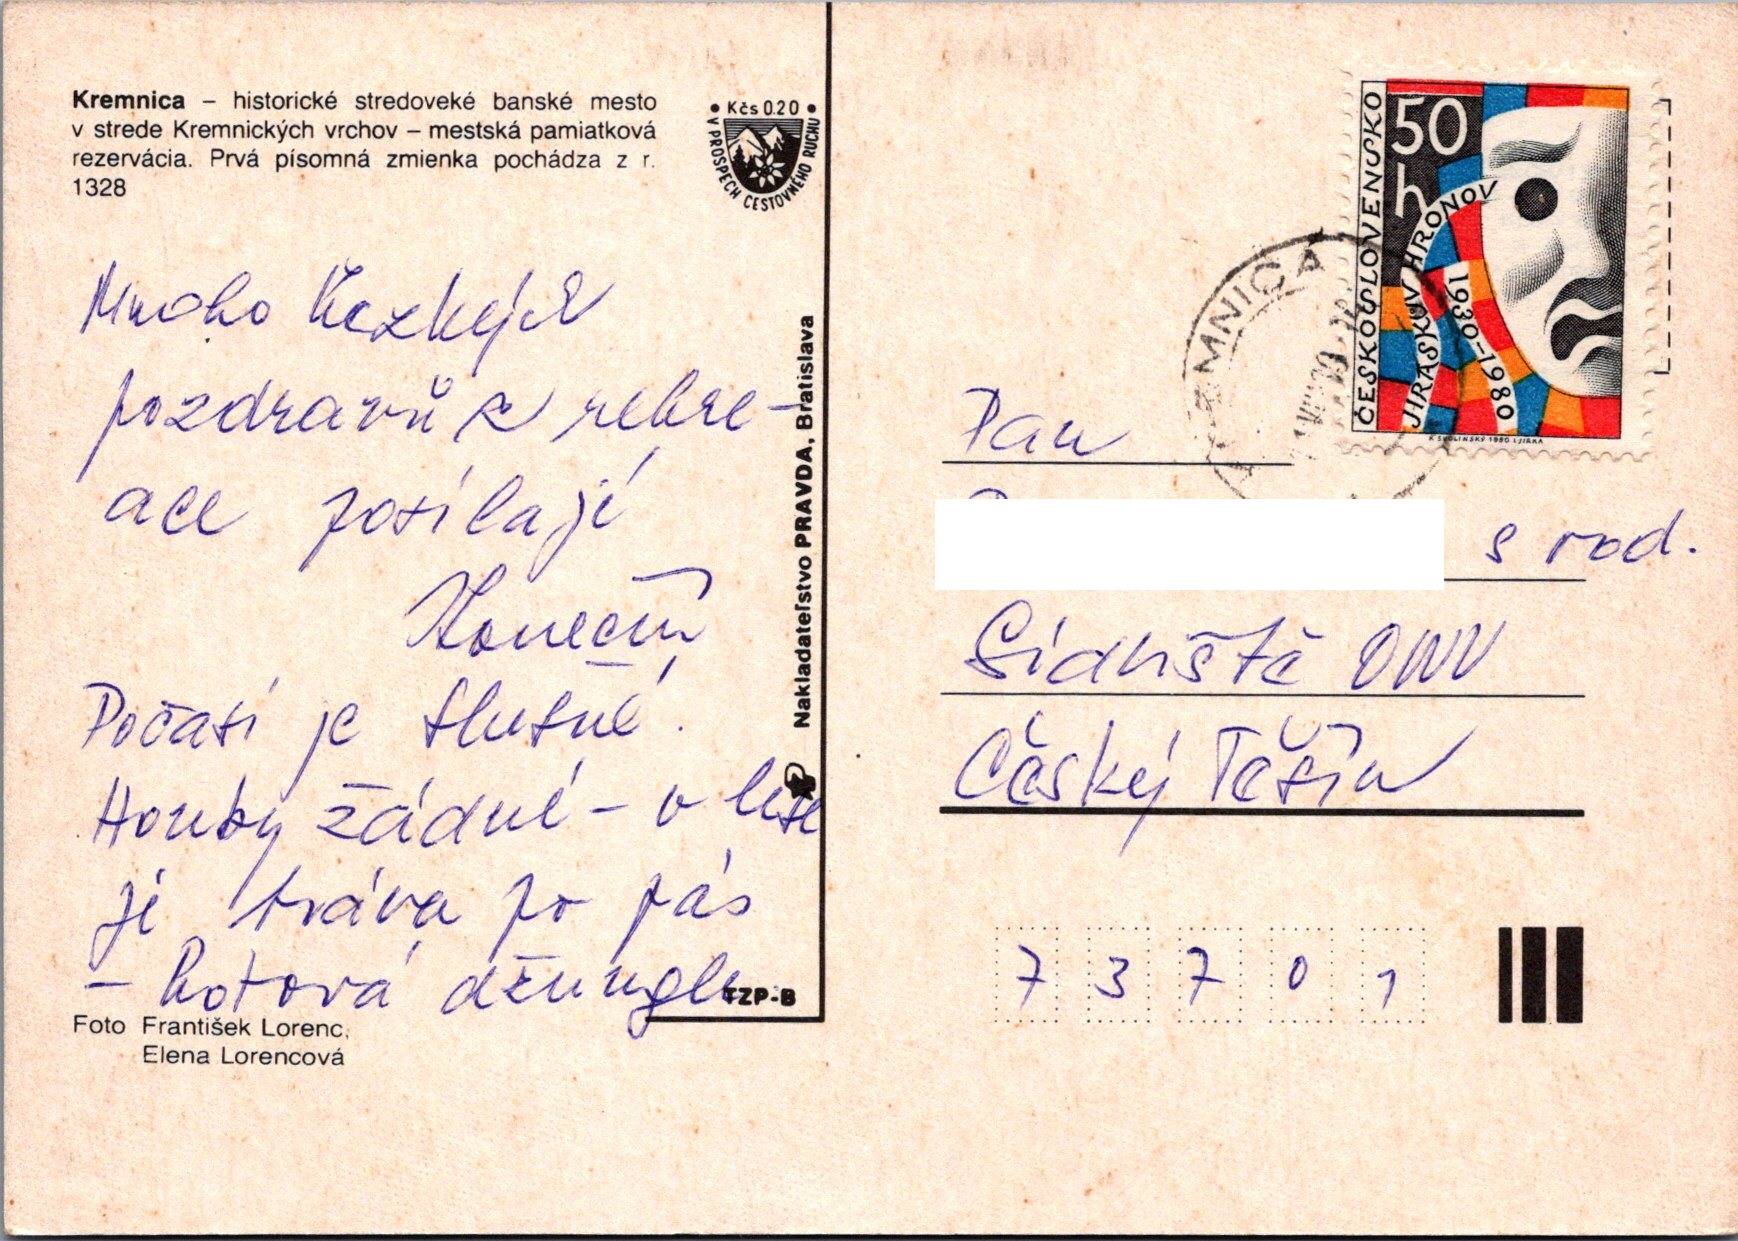 Kremnica – historické stredoveké banské mesto
v strede Kremnických vrchov – mestská pamiatková
rezervácia. Prvá písomná zmienka pochádza z r.
1328
• Kčs 0.20 •
V PROSPECH CESTOVNÉHO RUCHU
Mnoho hezkých
pozdravů z rekre-
ace posílají
Koneční
Počasí je slušné.
Houby žádné – v lese
je tráva po pás
– hotová džungle
Foto František Lorenc,
Elena Lorencová
TZP-B
Nakladateľstvo PRAVDA, Bratislava
ČESKOSLOVENSKO
50
h
JIRÁSKŮV HRONOV
1930–1980
K. SVOLINSKÝ 1980 J. JIRKA
MNICA
Pan
s rod.
Sídliště ONV
Český Těšín
73701